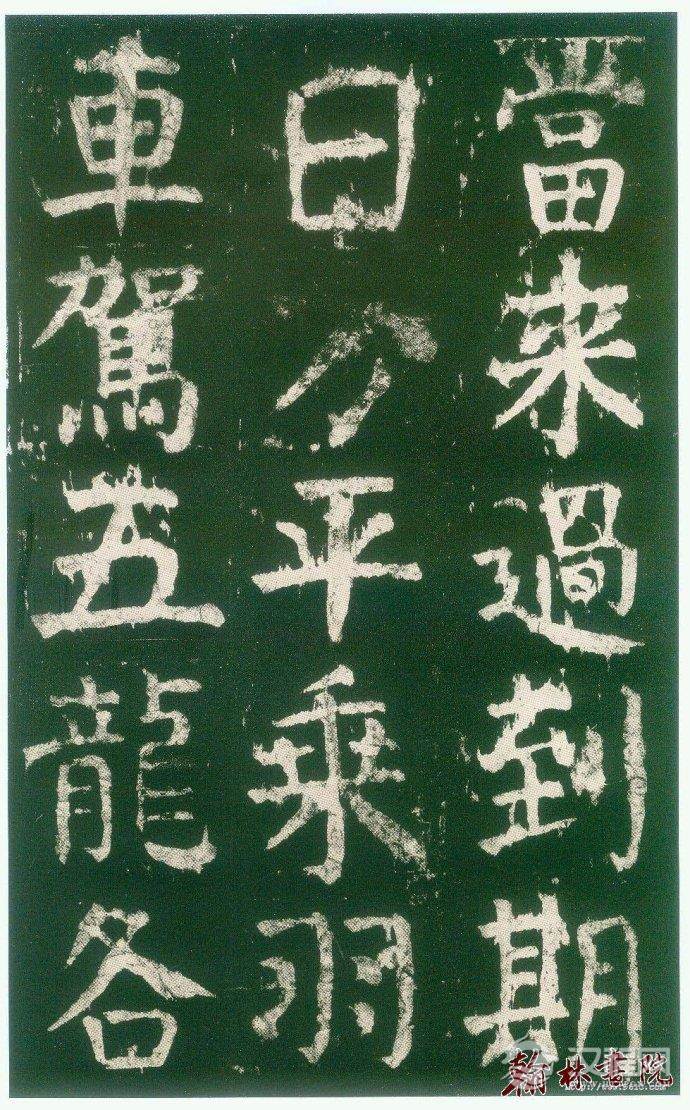 當来過到期
日方平乘羽
車駕五龍各
翰林書院